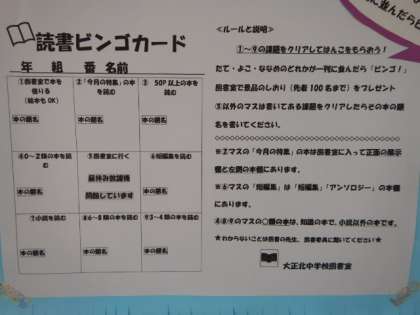 読書ビンゴカード
年 組 番 名前
①図書室で本を
借りる
(絵本もOK)
本の題名
②「今月の特集」の本
を読む
本の題名
③ 50P以上の本を
読む
本の題名
④0~2類の本を読
む
本の題名
⑤図書室に行く
昼休み放課後
開館しています
⑥短編集を読む
本の題名
⑦小説を読む
本の題名
⑧6~8類の本を読
む
本の題名
⑨3~4類の本を読
む
本の題名
≪ルールと説明≫
①~⑨の課題をクリアしてはんこをもらおう!
たて・よこ・ななめのどれかが一列に並んだら「ビンゴ!」
図書室で景品のしおり(先着100名まで)をプレゼント
⑤以外のマスは書いてある課題をクリアしたらその本の題
名を書いてください。
※②マス「今月の特集」の本は図書室に入って正面の展示
棚と左側の本棚にあります。
※⑥マスの「短編集」は「短編集」「アンソロジー」の本棚
にあります。
④⑧⑨マスの○類の本は、知識の本で、小説以外の本です。
★わからないことは図書の先生、図書委員に聞いてください★
大正北中学校図書室
に並んだら